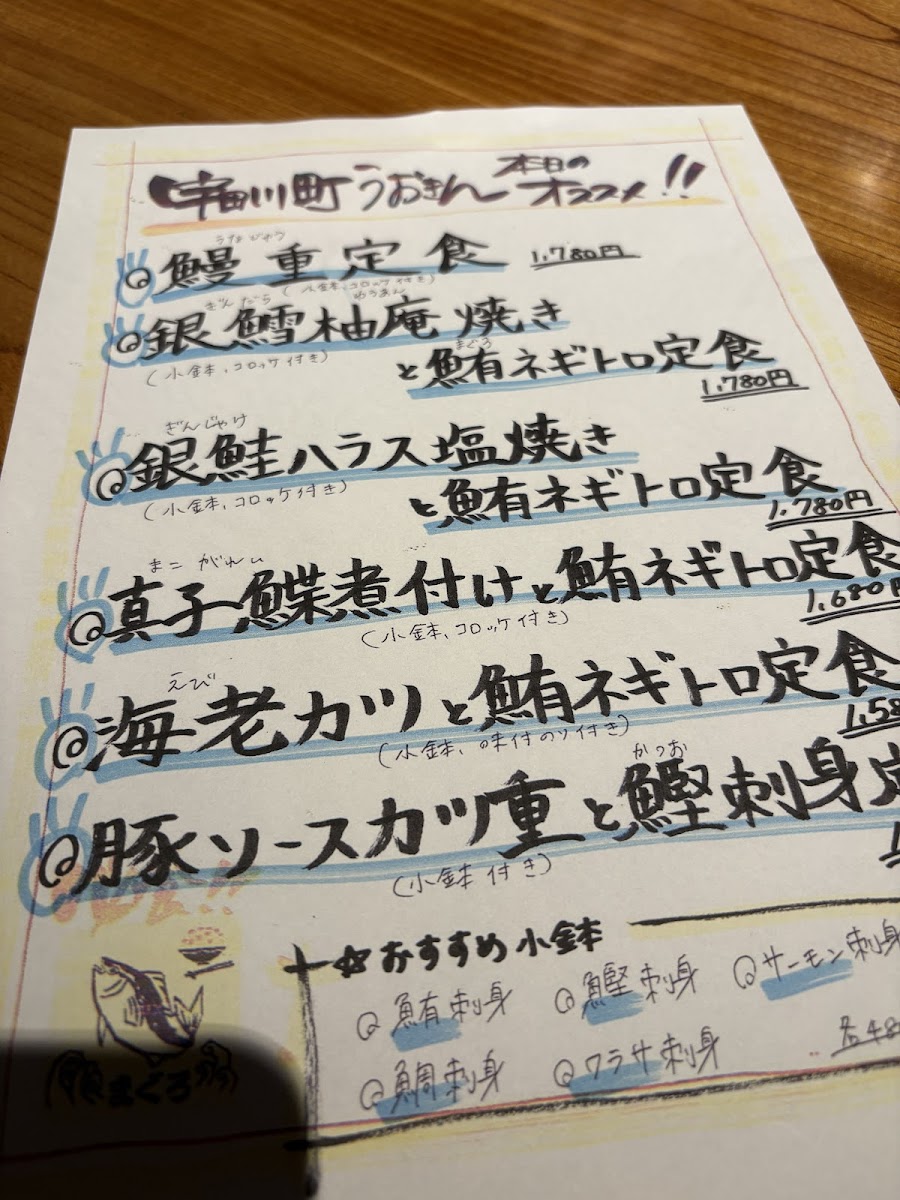 宇田川町 うおきん 本日のオススメ!!
うなじゅう
鰻重定食 1,780円
(小鉢、コロッケ付き)
ぎんだら ゆうあん
銀鱈柚庵焼き
(小鉢、コロッケ付き)
まぐろ
と鮪ネギトロ定食
1,780円
ぎんじゃけ
銀鮭ハラス塩焼き
(小鉢、コロッケ付き)
と鮪ネギトロ定食
1,780円
まこがれい
真子鰈煮付けと鮪ネギトロ定食
1,680円
(小鉢、コロッケ付き)
えび
海老カツと鮪ネギトロ定食
1,58
(小鉢、味付のり付き)
かつお
豚ソースカツ重と鰹刺身定
(小鉢付き)
☆おすすめ小鉢
鮪刺身 鰹刺身 サーモン刺身
鯛刺身 ワラサ刺身
各48
まぐろ